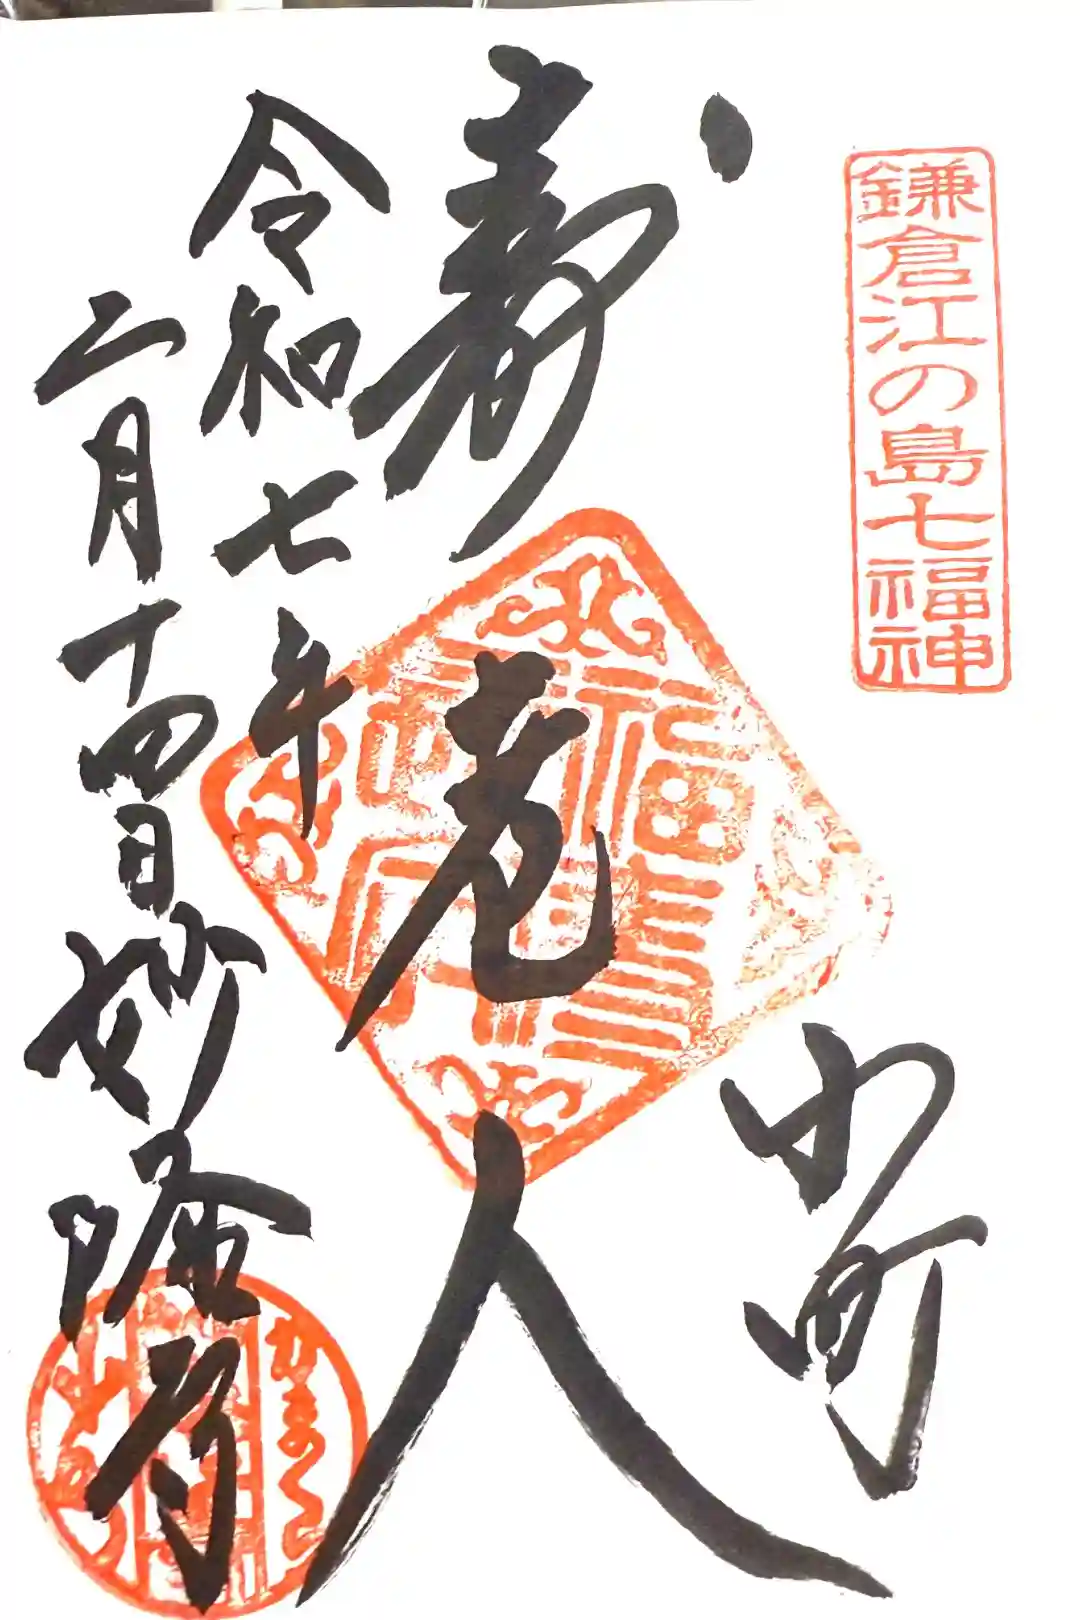 鎌倉江の島七福神
小町
寿老人
令和七年
二月十四日妙隆寺
かまくら